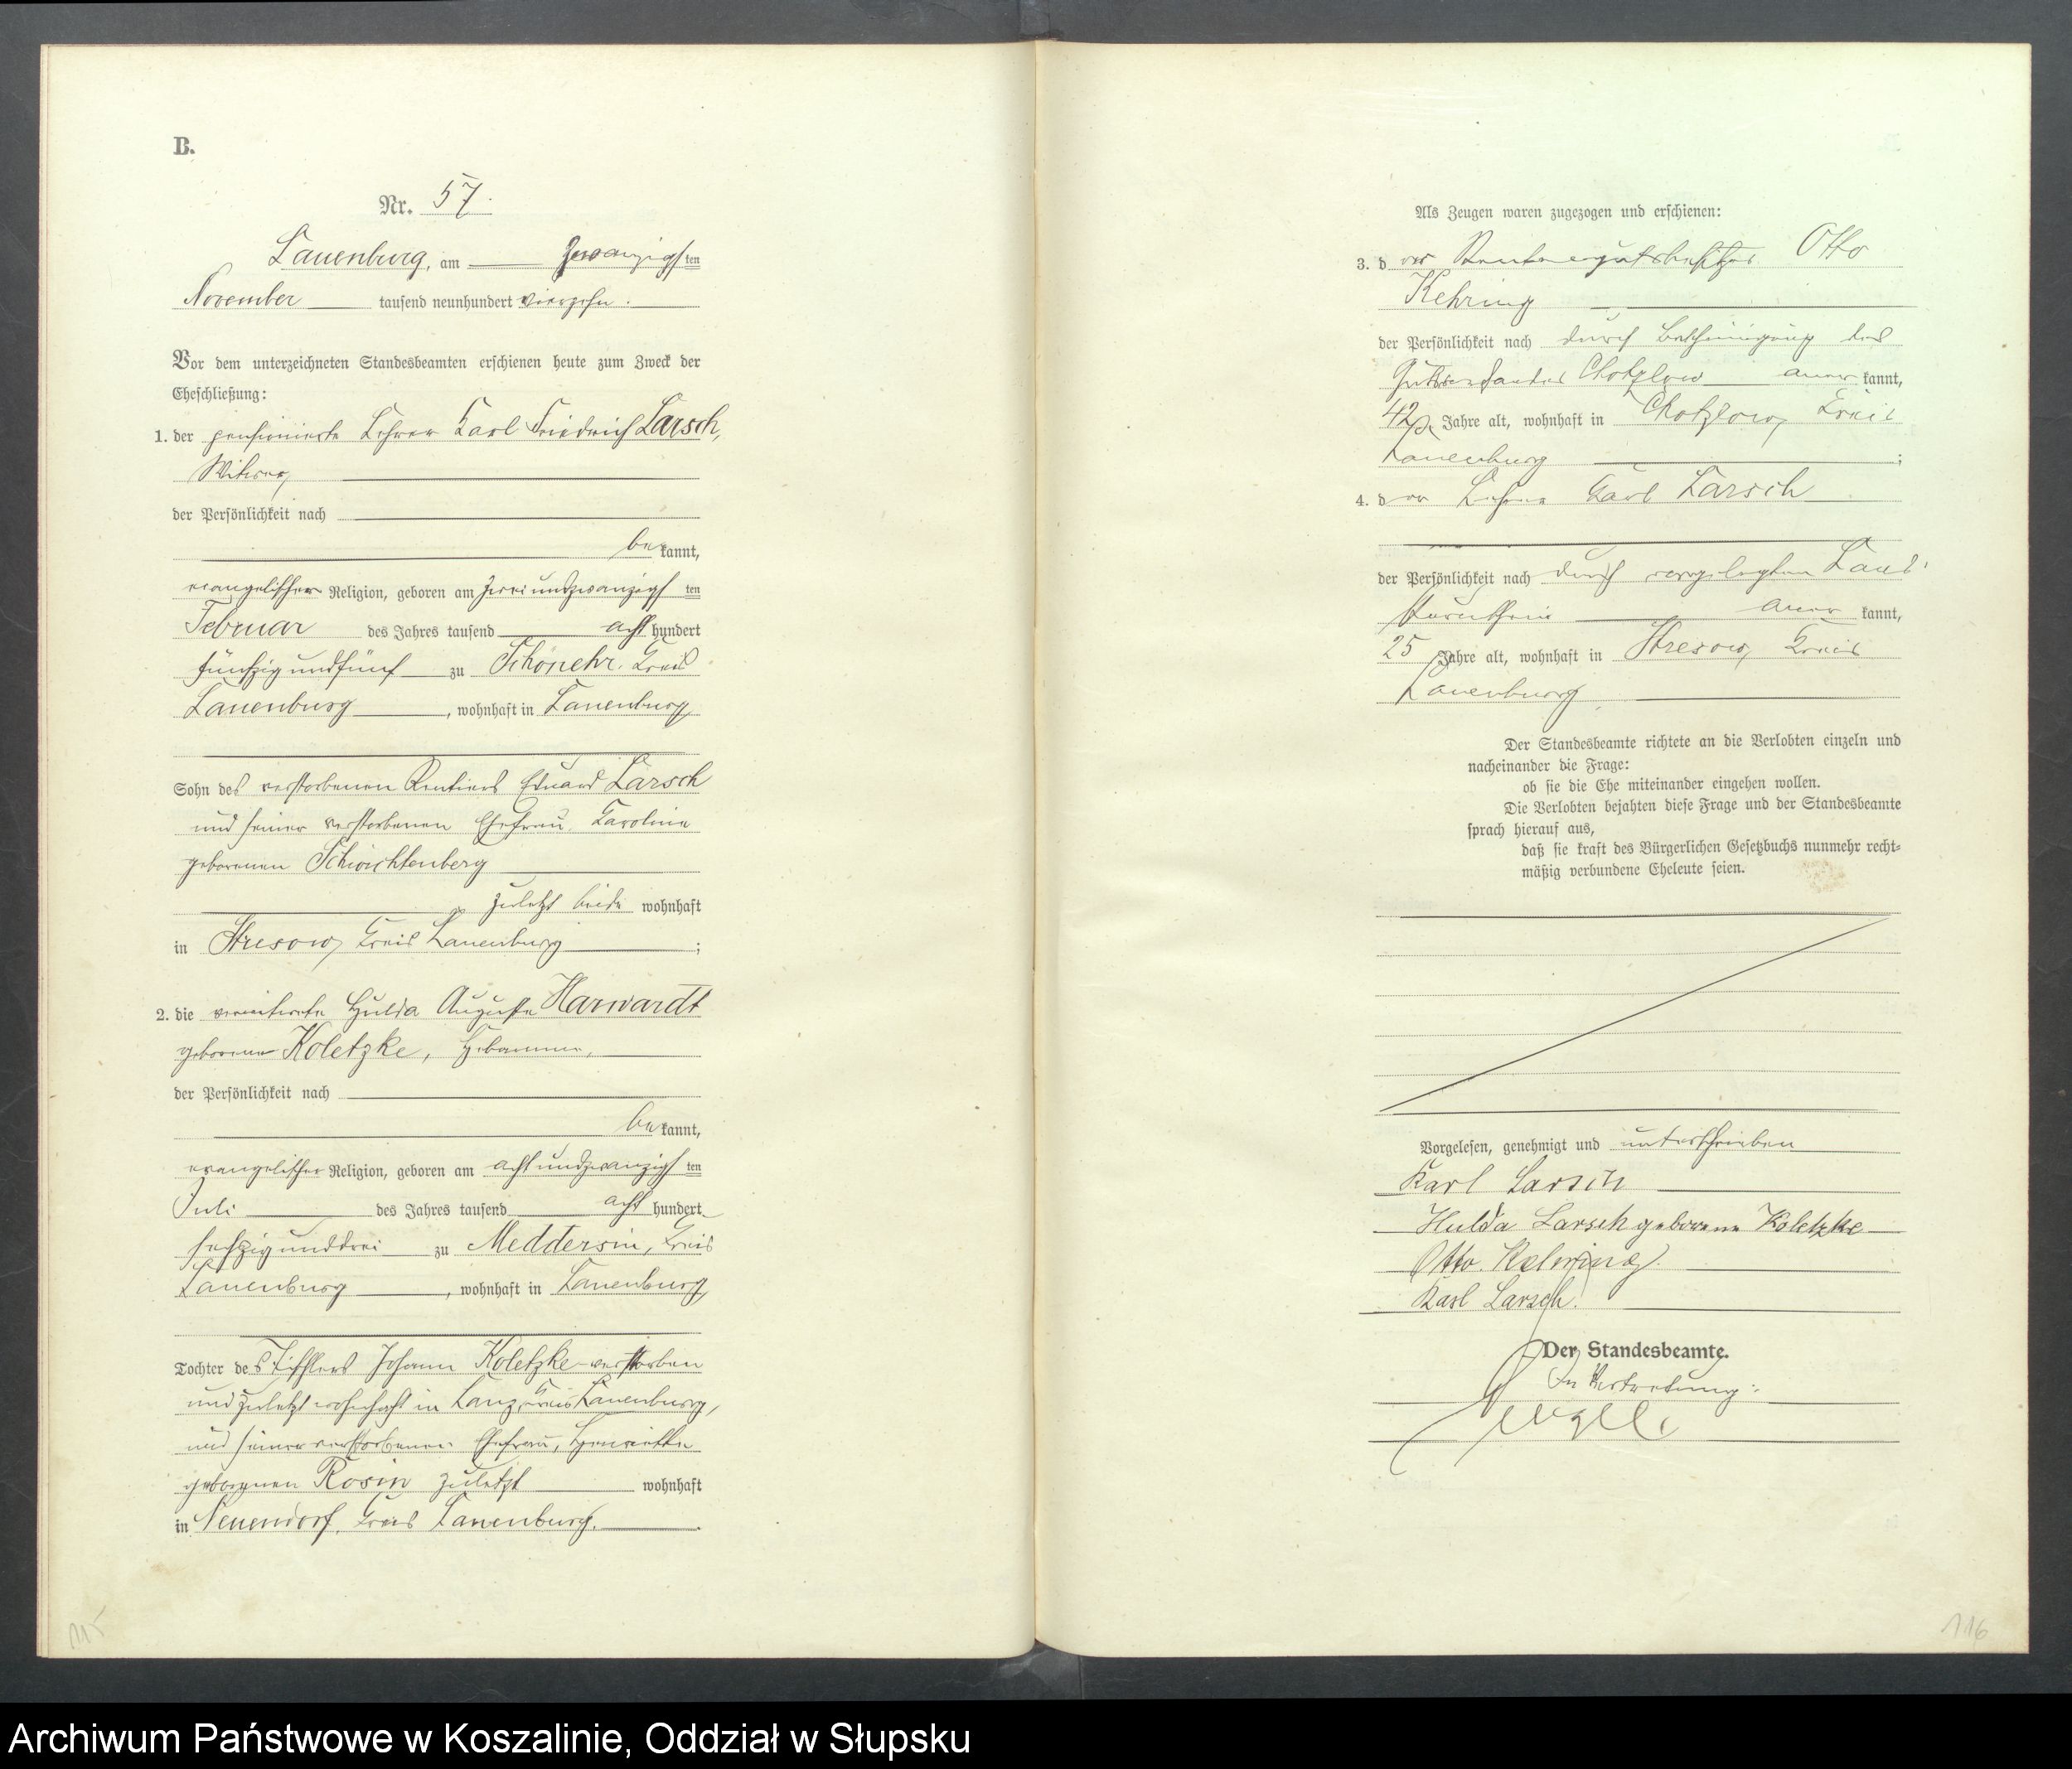 B.
Nr. 57.
Lauenburg, am zwanzigsten
November tausend neunhundert vierzehn.
Vor dem unterzeichneten Standesbeamten erschienen heute zum Zweck der
Eheschließung:
1. der pensionierte Lehrer Karl Friedrich Larsch,
Witwer,
der Persönlichkeit nach
bekannt,
evangelischer Religion, geboren am zweiundzwanzigsten
Februar des Jahres tausend acht hundert
fünfzig und fünf zu Schönehr, Kreis
Lauenburg, wohnhaft in Lauenburg
Sohn des verstorbenen Rentiers Eduard Larsch
und seiner verstorbenen Ehefrau Karoline
geborenen Schwichtenberg
zuletzt beide wohnhaft
in Stresow, Kreis Lauenburg;
2. die verwitwete Hulda Auguste Harwardt
geborene Koletzke, Hebamme,
der Persönlichkeit nach
bekannt,
evangelischer Religion, geboren am achtundzwanzigsten
Juli des Jahres tausend acht hundert
sechzig und drei zu Meddersin, Kreis
Lauenburg, wohnhaft in Lauenburg
Tochter des Tischlers Johann Koletzke verstorben
und zuletzt wohnhaft in Lanz, Kreis Lauenburg,
und seiner verstorbenen Ehefrau, Henriette
geborenen Rosin zuletzt wohnhaft
in Neuendorf, Kreis Lauenburg.
115
Als Zeugen waren zugezogen und erschienen:
3. der Rentengutsbesitzer Otto
Kehring
der Persönlichkeit nach durch Bescheinigung des
Chotzlow anerkannt,
42 Jahre alt, wohnhaft in Chotzlow, Kreis
Lauenburg;
4. der Lehrer Karl Larsch
der Persönlichkeit nach durch vorgelegten Land-
sturmschein anerkannt,
25 Jahre alt, wohnhaft in Stresow, Kreis
Lauenburg.
Der Standesbeamte richtete an die Verlobten einzeln und
nacheinander die Frage:
ob sie die Ehe miteinander eingehen wollen.
Die Verlobten bejahten diese Frage und der Standesbeamte
sprach hierauf aus,
daß sie kraft des Bürgerlichen Gesetzbuchs nunmehr recht-
mäßig verbundene Eheleute seien.
Vorgelesen, genehmigt und unterschrieben
Karl Larsch
Hulda Larsch geborene Koletzke
Otto Kehring.
Karl Larsch.
Der Standesbeamte.
In Vertretung:
116
Archiwum Państwowe w Koszalinie, Oddział w Słupsku